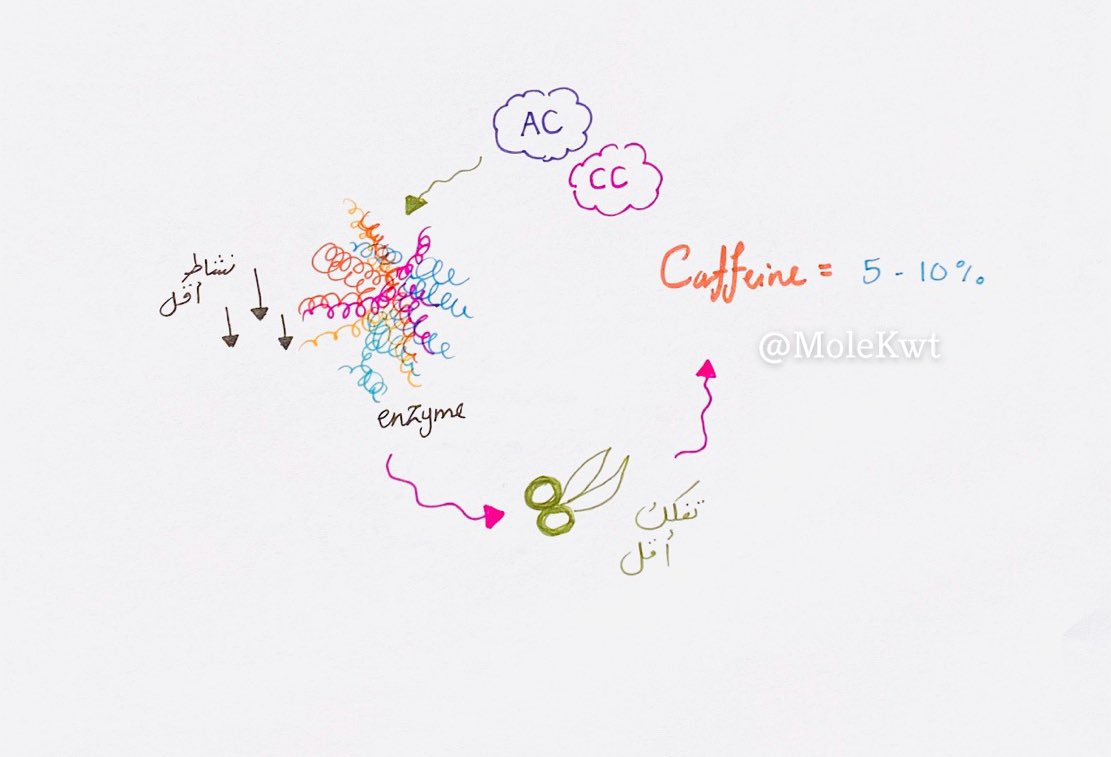 AC
CC
نشاط
أقل
Caffeine = 5 - 10%
@MoleKwt
enzyme
تفكك
أقل